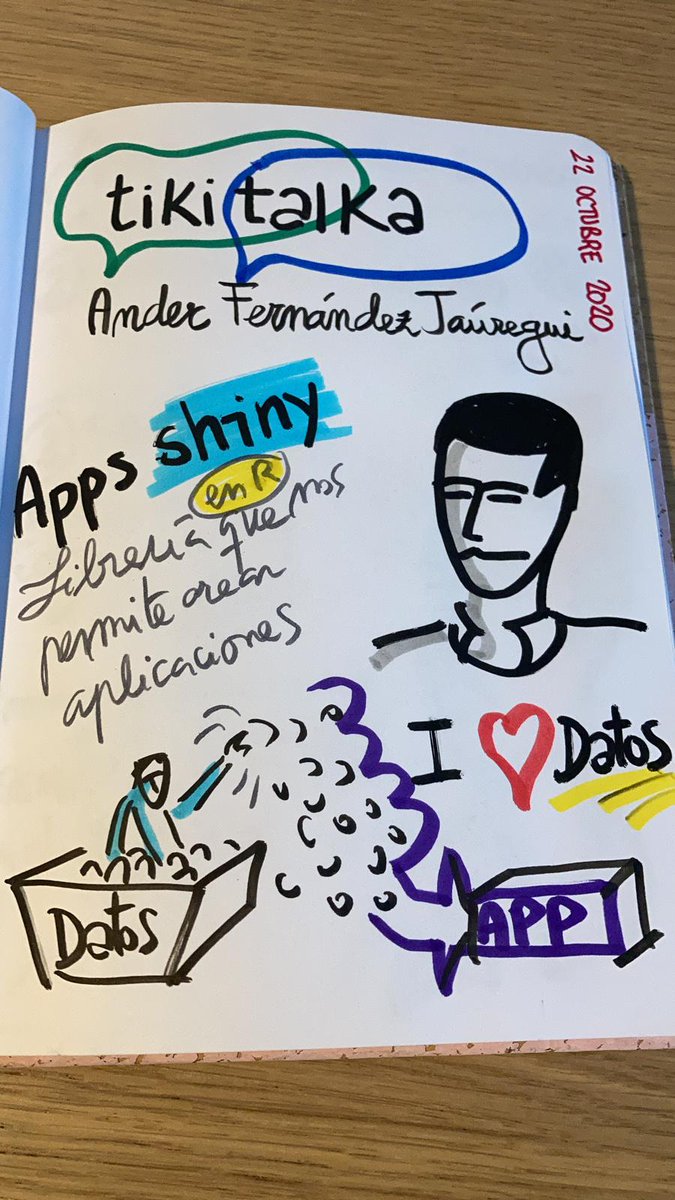 tiki talka
22 OCTUBRE 2020
Ander Fernández Jaúregui
Apps shiny
en R
Librería que nos
permite crear
aplicaciones
I ❤ Datos
Datos
APP